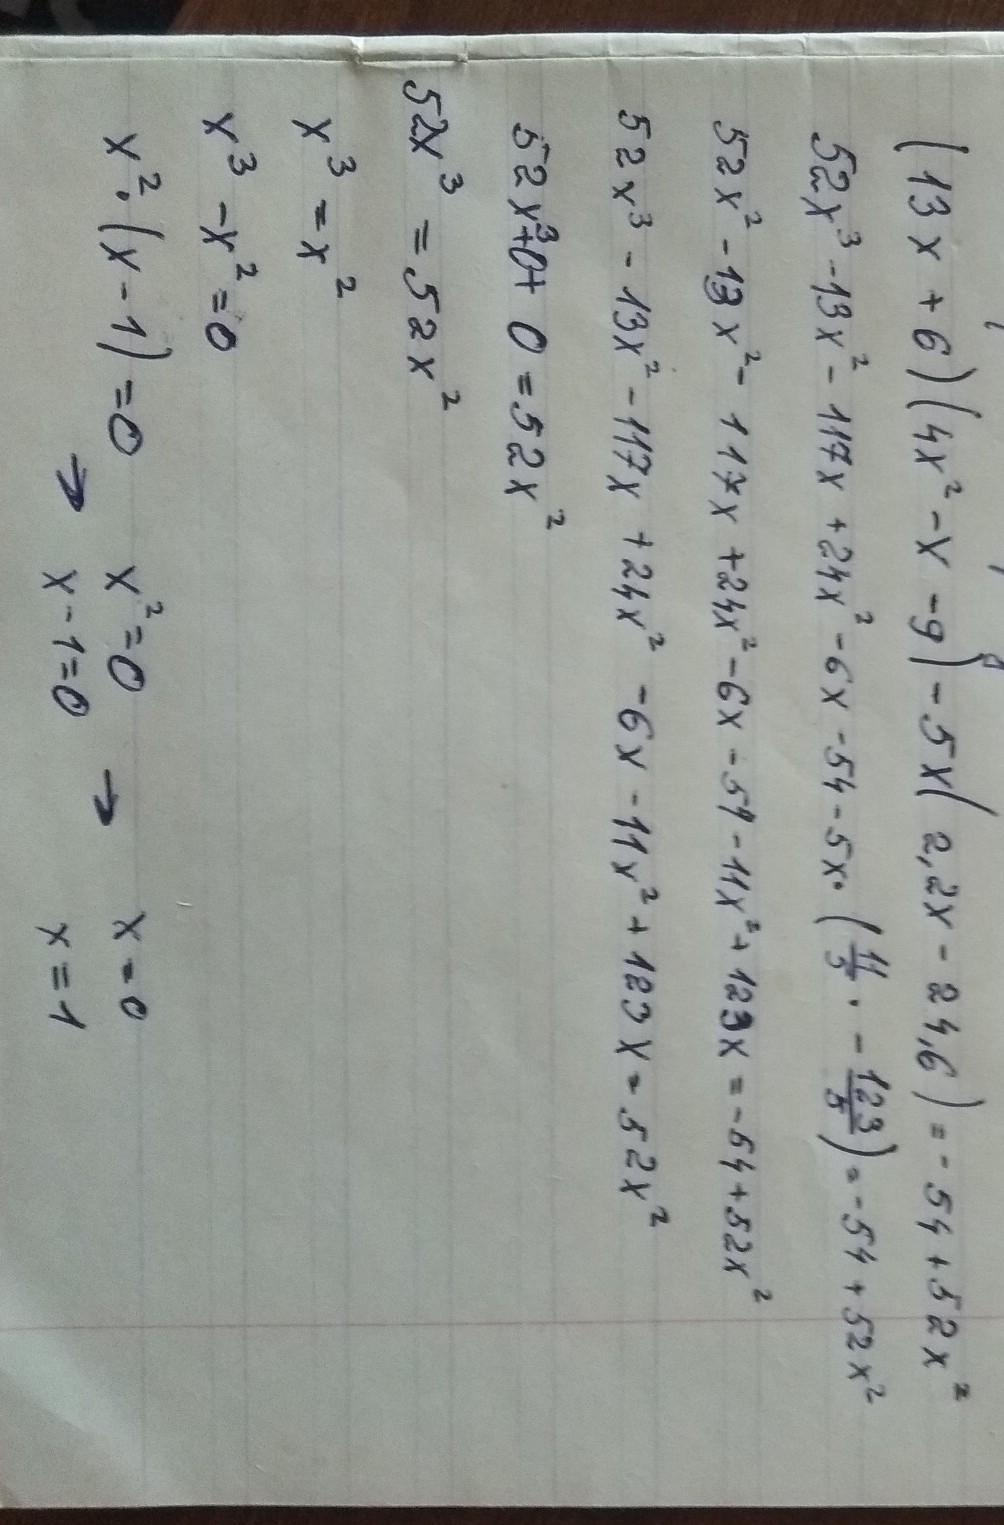 (13x + 6)(4x² - x - 9) - 5x(2,2x - 24,6) = - 54 + 52x²
52x³ - 13x² - 117x + 24x² - 6x - 54 - 5x · (11/5 · - 123/5) = - 54 + 52x²
52x² - 13x² - 117x + 24x² - 6x - 54 - 11x² + 123x = - 54 + 52x²
52x³ - 13x² - 117x + 24x² - 6x - 11x² + 123x = 52x²
52x³ + 0 + 0 = 52x²
52x³ = 52x²
x³ = x²
x³ - x² = 0
x² · (x - 1) = 0 → x² = 0 → x = 0
x - 1 = 0 x = 1